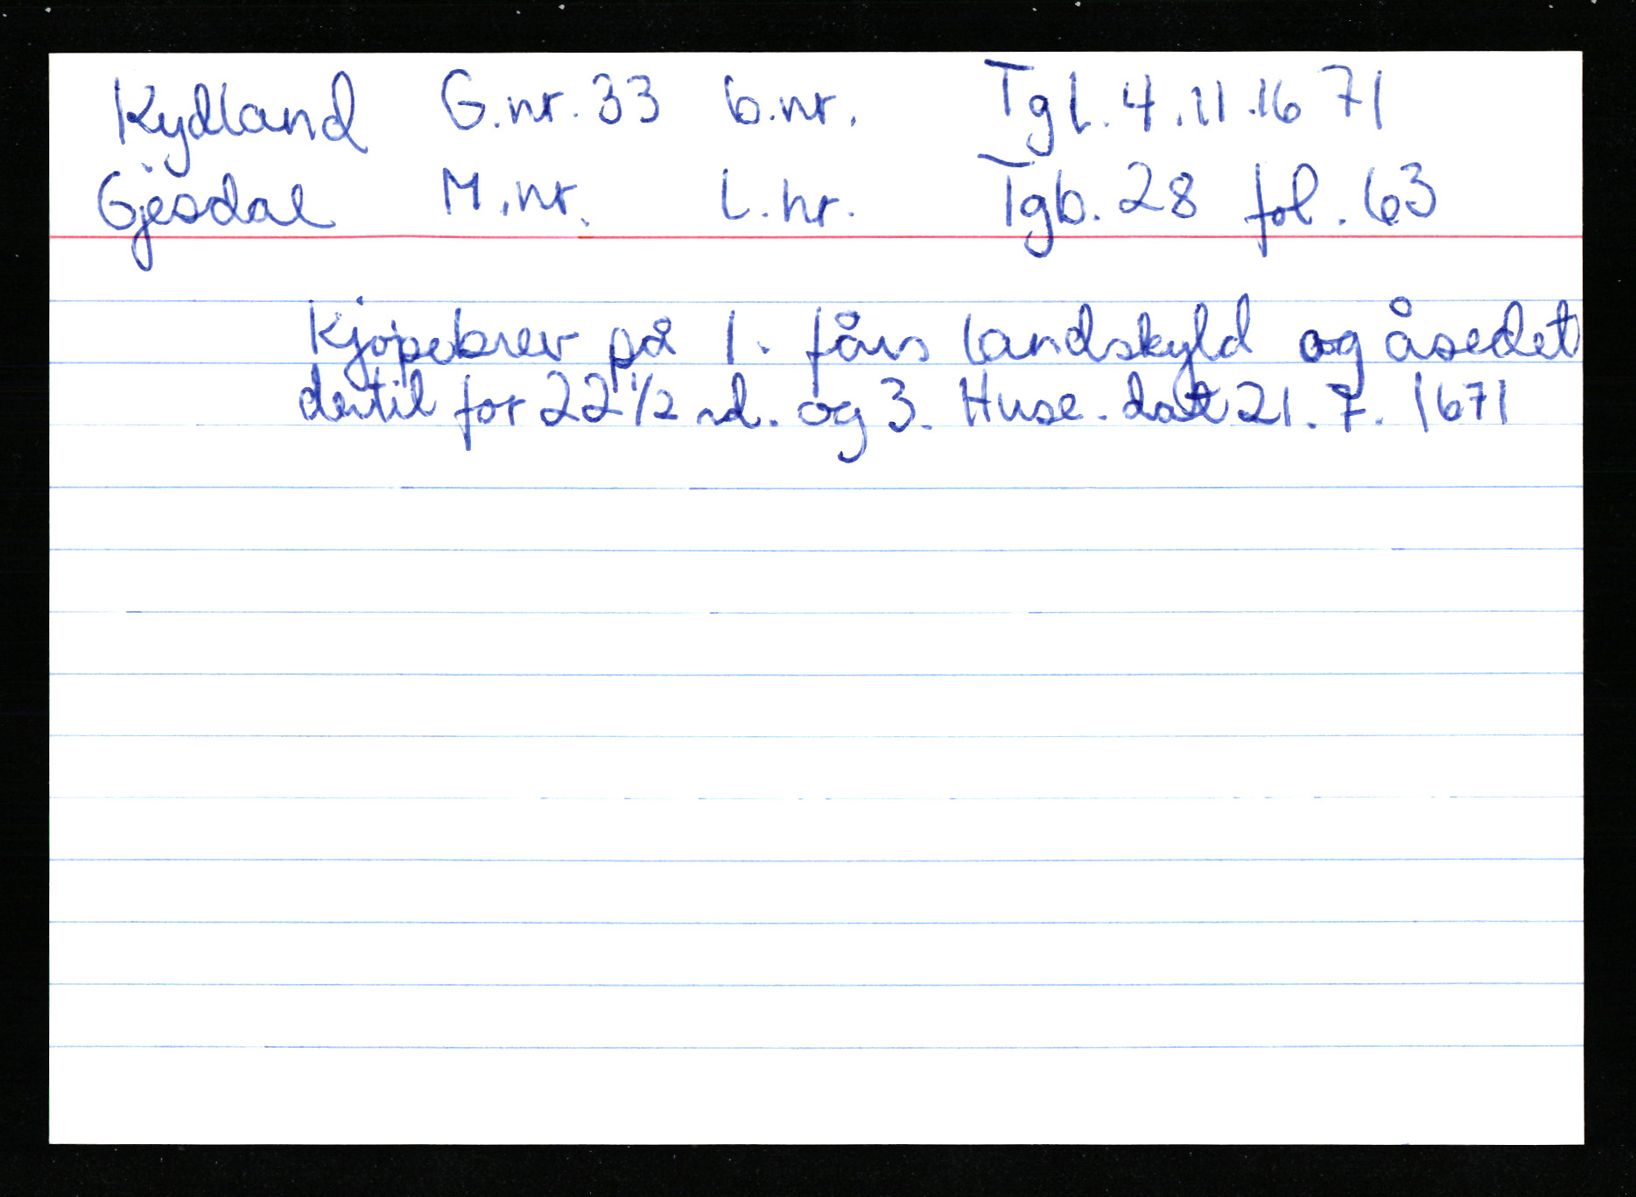 Kydland G.nr. 33 b.nr. Tgl. 4.11.1671
Gjesdal M.nr. L.nr. Tgb. 28 fol. 63
Kjøpebrev på 1. fårs landskyld og åsedet
dertil for 22 1/2 rd. og 3. Huse. dat 21. 7. 1671